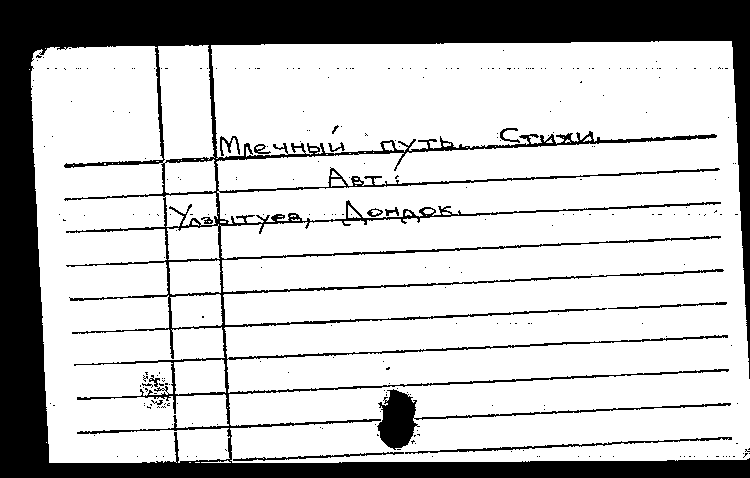 Млечный путь. Стихи.
Авт.:
Улзытуев, Дондок.